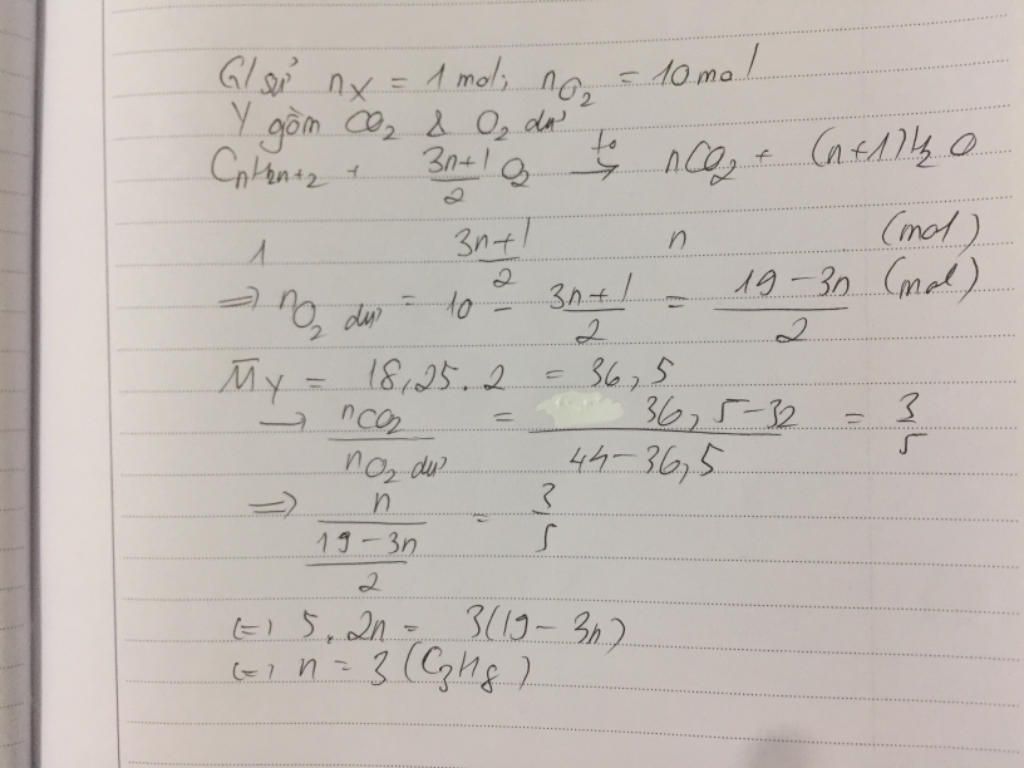 G/sử nX = 1 mol; nO2 = 10 mol
Y gồm CO2 & O2 dư
CnH2n+2 + (3n+1)/2 O2 →(to) nCO2 + (n+1)H2O
1 (3n+1)/2 n (mol)
=> nO2 dư = 10 - (3n+1)/2 = (19-3n)/2 (mol)
M̅Y = 18,25.2 = 36,5
→ nCO2/nO2 dư = (36,5-32)/(44-36,5) = 3/5
=> n/((19-3n)/2) = 3/5
(=) 5.2n = 3(19-3n)
(=) n = 3 (C3H8)